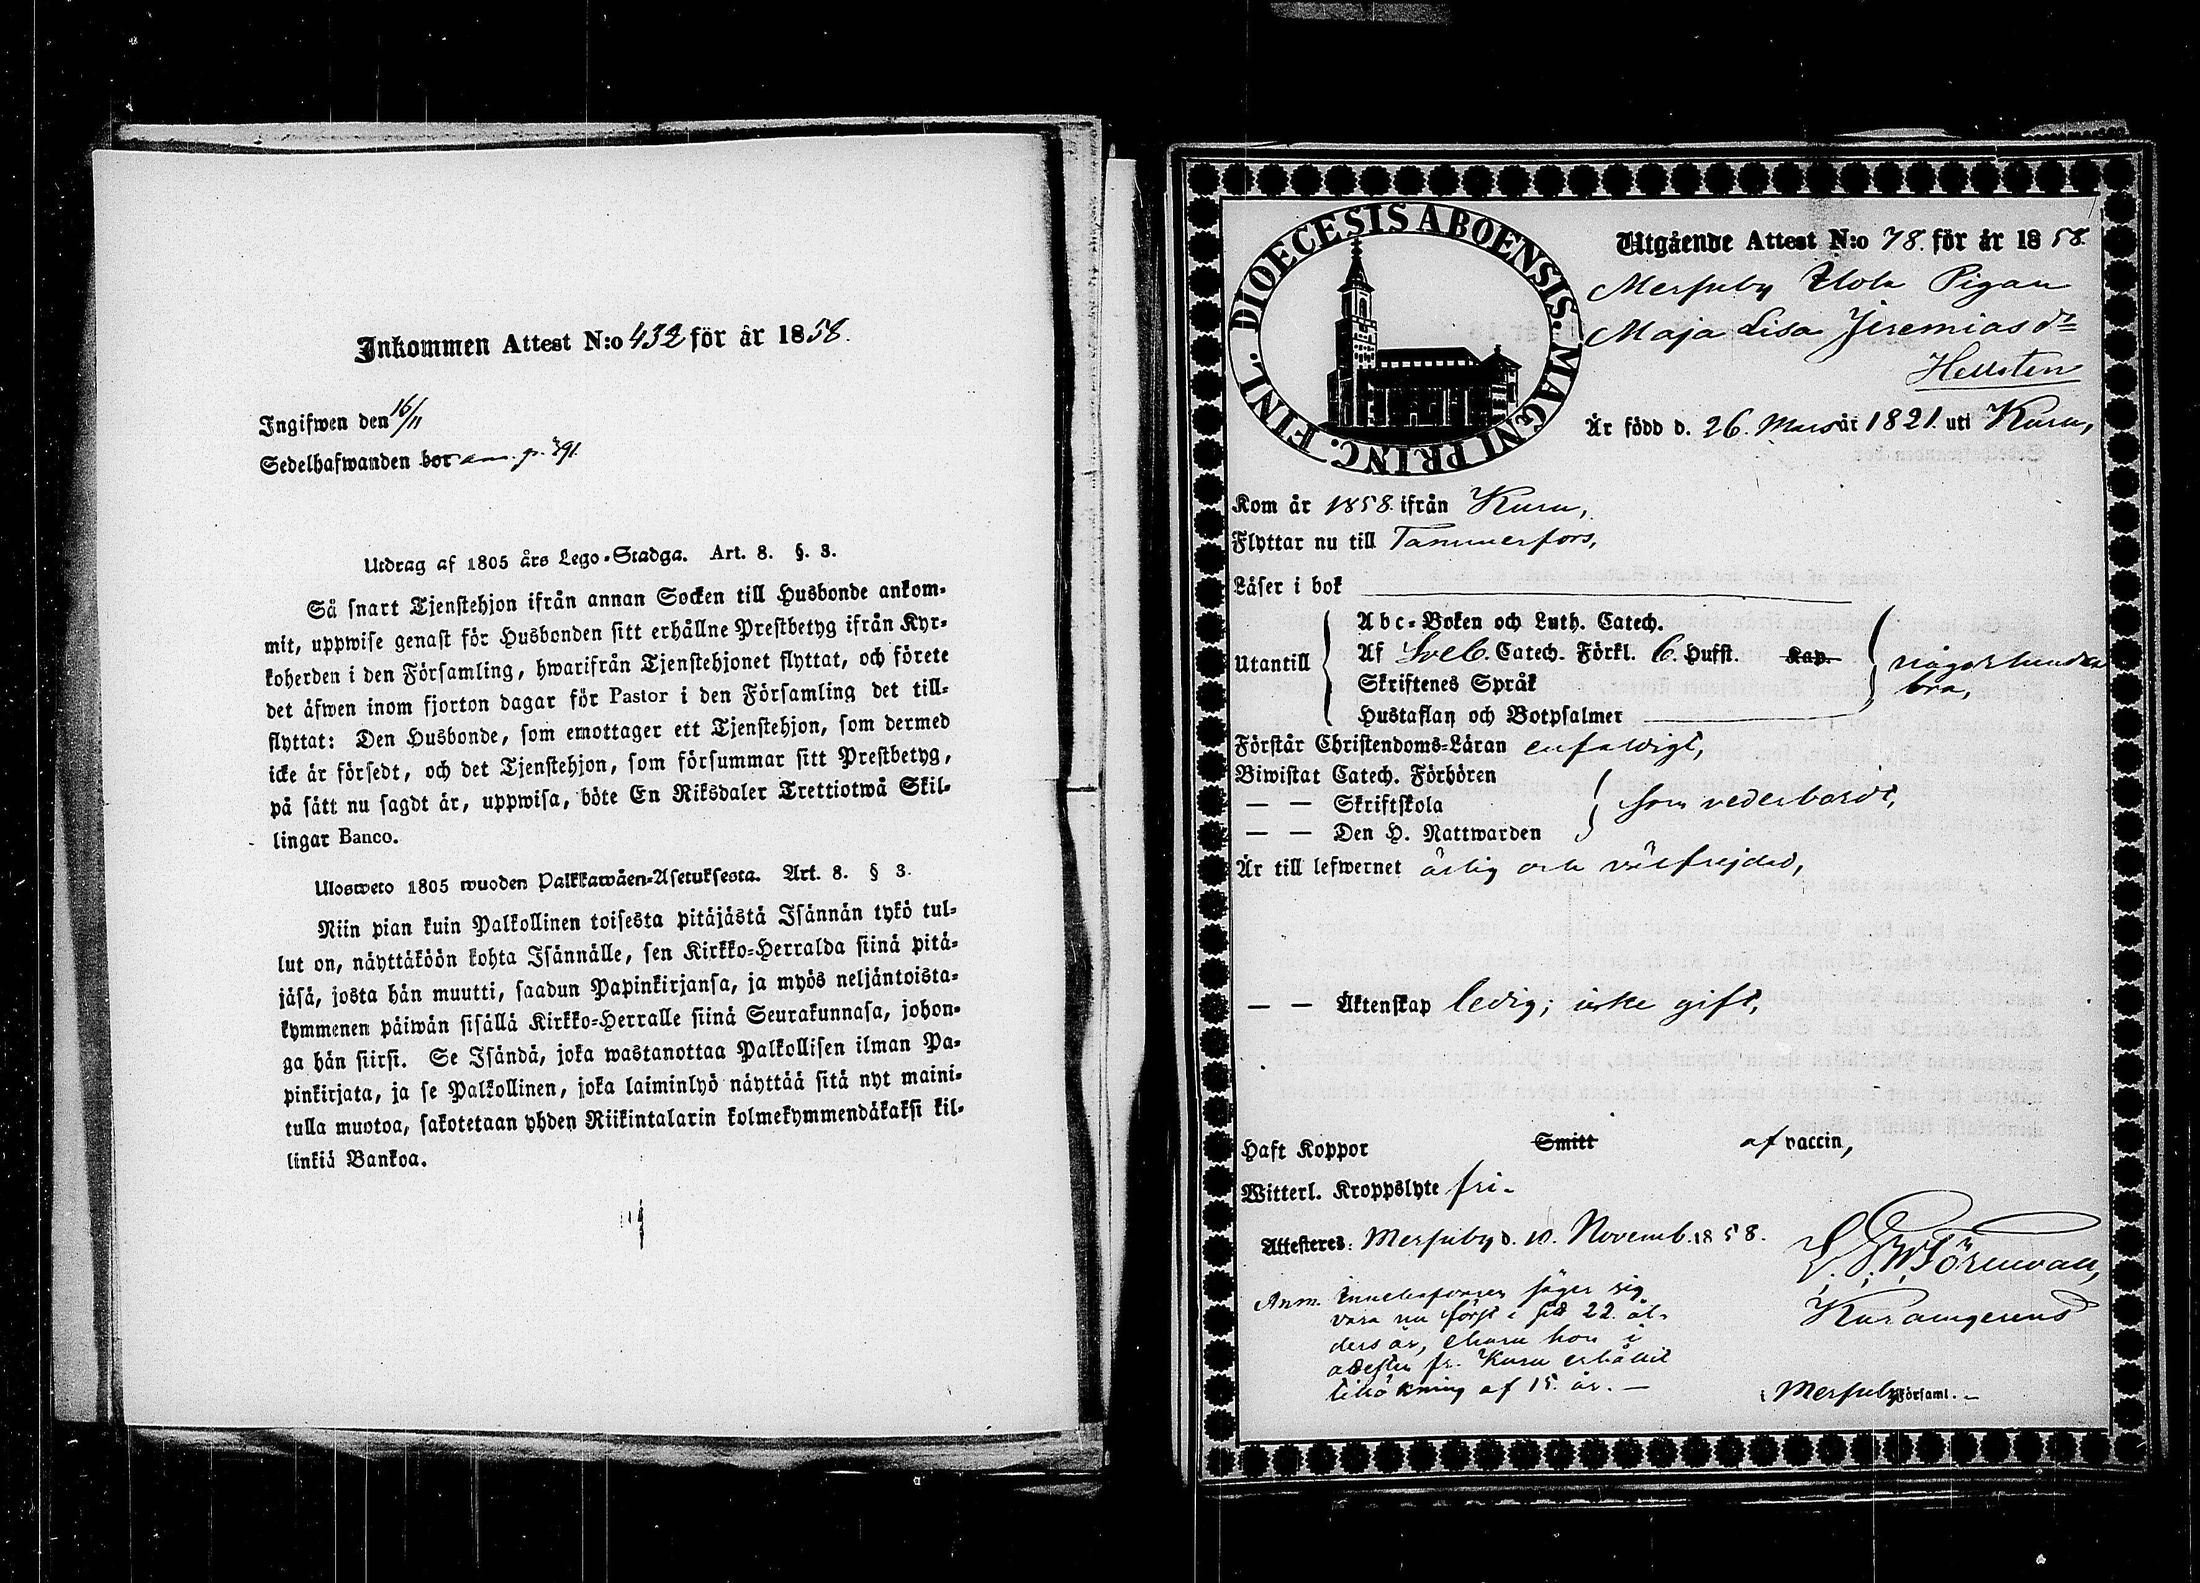 Inkommen Attest N:o 432 för år 1858.
Ingifwen den 16/11
Sedelhafwanden bor ann. p. 391.
Utdrag af 1805 års Lego-Stadga. Art. 8. §. 3.
Så snart Tjenstehjon ifrån annan Socken till Husbonde ankom-
mit, uppwise genast för Husbonden sitt erhållne Prestbetyg ifrån Kyr-
koherden i den Församling, hwarifrån Tjenstehjonet flyttat, och förete
det äfwen inom fjorton dagar för Pastor i den Församling det till-
flyttat: Den Husbonde, som emottager ett Tjenstehjon, som dermed
icke är försedt, och det Tjenstehjon, som försummar sitt Prestbetyg,
på sätt nu sagdt är, uppwisa, böte En Riksdaler Trettiotwå Skil-
lingar Banco.
Ulosweto 1805 wuoden Palkkawäen-Asetuksesta. Art. 8. § 3.
Niin pian kuin Palkollinen toisesta pitäjästä Isännän tykö tul-
lut on, näyttäköön kohta Isännälle, sen Kirkko-Herralda siinä pitä-
jäsä, josta hän muutti, saadun Papinkirjansa, ja myös neljäntoista-
kymmenen päiwän sisällä Kirkko-Herralle siinä Seurakunnasa, johon-
ga hän siirsi. Se Isändä, joka wastanottaa Palkollisen ilman Pa-
pinkirjata, ja se Palkollinen, joka laiminlyö näyttää sitä nyt maini-
tulla muotoa, sakotetaan yhden Riikintalarin kolmekymmendäkaksi kil-
linkiä Bankoa.
DIOECESIS ABOENSIS. MAGNI PRINC. FINL.
Utgående Attest N:o 78. för år 1858.
Messuby Pigan
Maja Lisa Jeremiasdr
Hellsten
Är född d. 26. Mars år 1821. uti Kuru,
Kom år 1858. ifrån Kuru,
Flyttar nu till Tammerfors,
Läser i bok
Utantill
Abc-Boken och Luth. Catech.
Af Sveb. Catech. Förkl. 6. Hufst. Kap.
Skriftenes Språk
Hustaflan och Botpsalmer
någorlunda
bra,
Förstår Christendoms-Läran enfaldigt,
Biwistat Catech. Förhören
— — Skriftskola
— — Den H. Nattwarden
som vederbordt,
Är till lefwernet ärlig och välfrejdad,
— — Äktenskap ledig; icke gift,
Haft Koppor Smitt af vaccin,
Witterl. Kroppslyte fri.
Attesteres: Messuby d. 10. Novemb. 1858.
Törnwall,
Anm. Innehafvaren säger sig
vara nu först i sitt 22. ål-
ders år, churu hon i
attesten fr. Kuru erhållit
tillökning af 15. år. —
i Messuby Församl. -